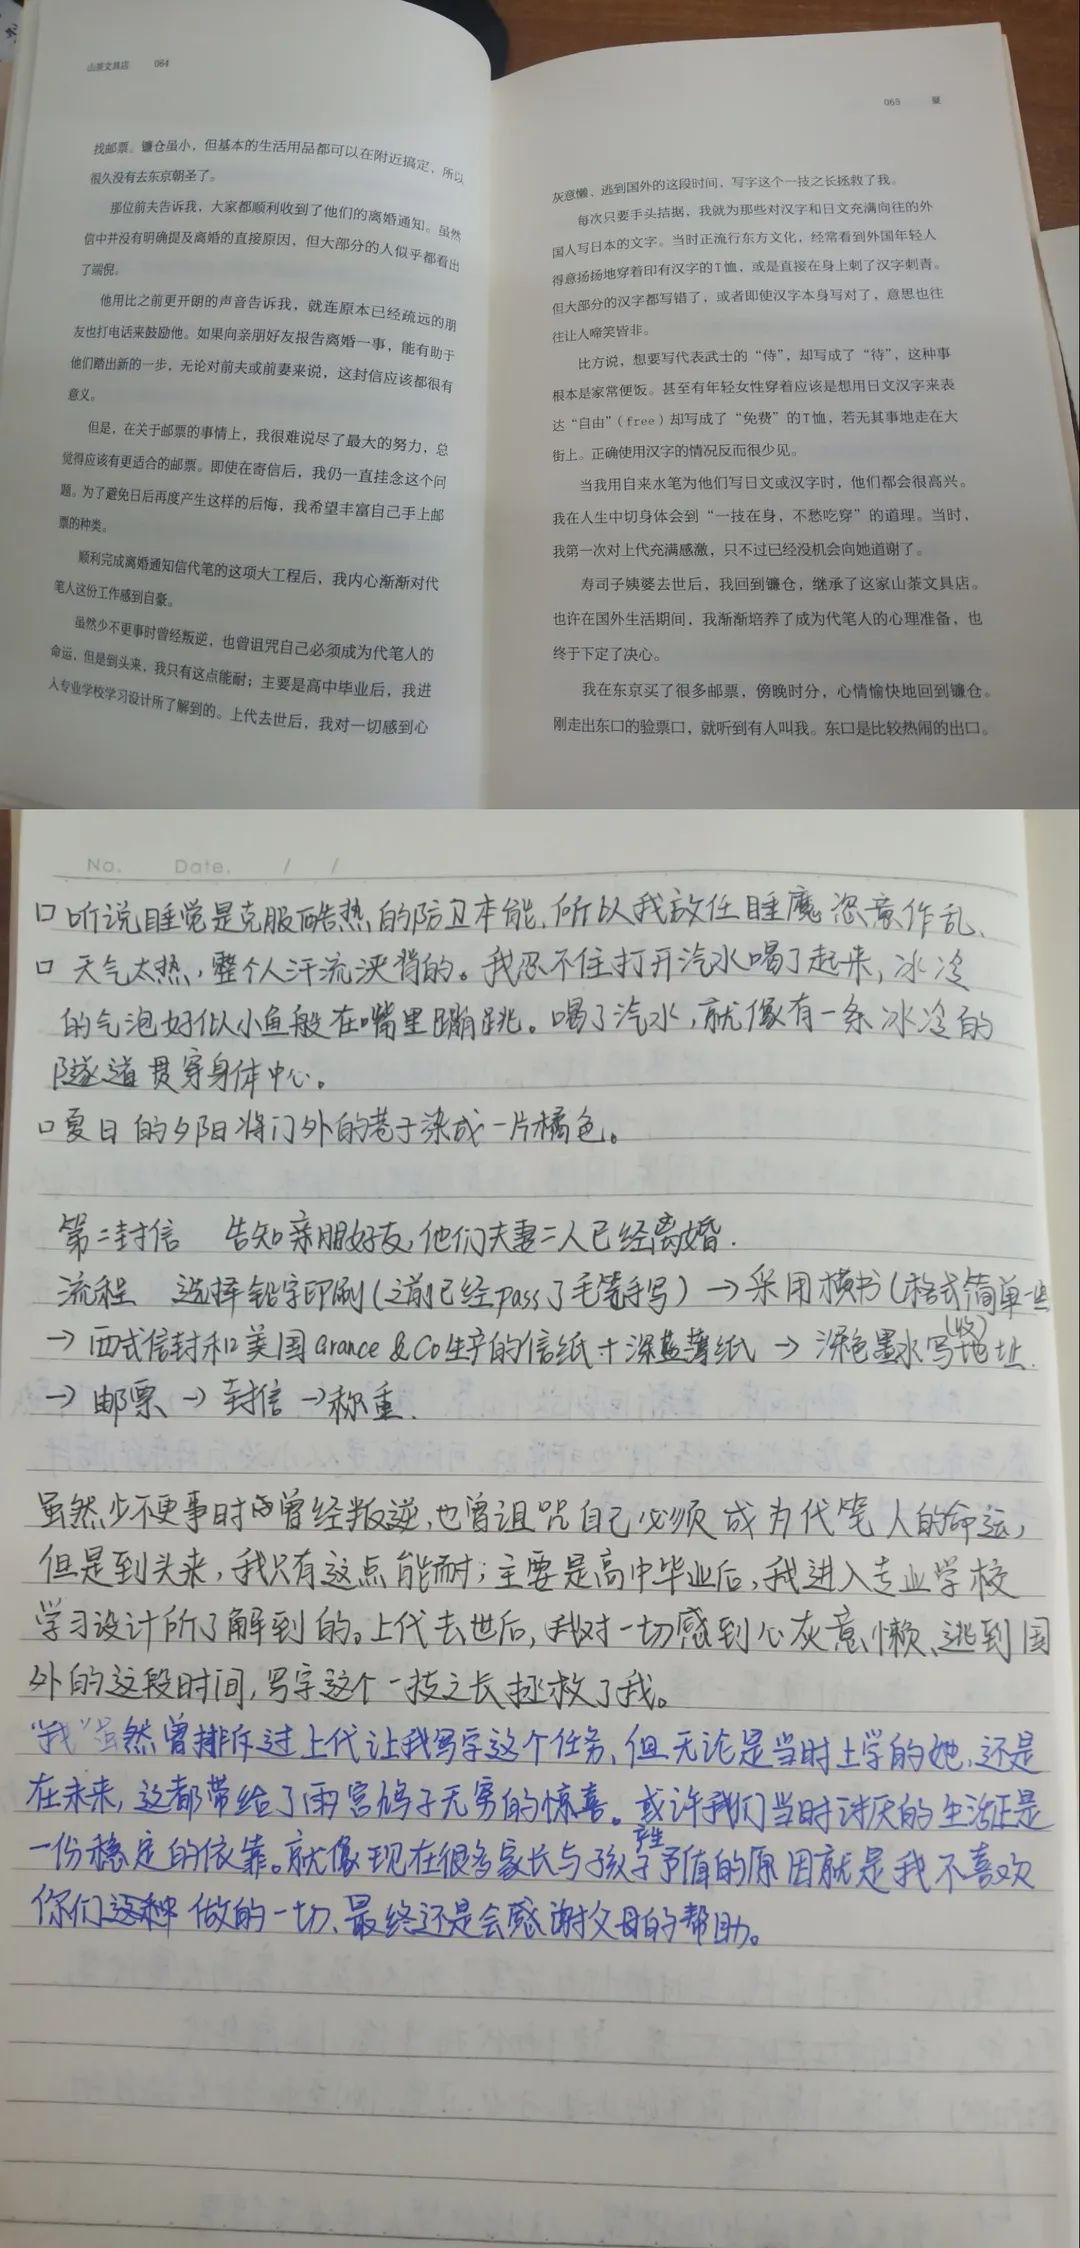 山茶文具店 064
找邮票。镰仓虽小，但基本的生活用品都可以在附近搞定，所以
很久没有去东京朝圣了。
那位前夫告诉我，大家都顺利收到了他们的离婚通知。虽然
信中并没有明确提及离婚的直接原因，但大部分的人似乎都看出
了端倪。
他用比之前更开朗的声音告诉我，就连原本已经疏远的朋
友也打电话来鼓励他。如果向亲朋好友报告离婚一事，能有助于
他们踏出新的一步，无论对前夫或前妻来说，这封信应该都很有
意义。
但是，在关于邮票的事情上，我很难说尽了最大的努力，总
觉得应该有更适合的邮票。即使在寄信后，我仍一直挂念这个问
题。为了避免日后再度产生这样的后悔，我希望丰富自己手上邮
票的种类。
顺利完成离婚通知信代笔的这项大工程后，我内心渐渐对代
笔人这份工作感到自豪。
虽然少不更事时曾经叛逆，也曾诅咒自己必须成为代笔人的
命运，但是到头来，我只有这点能耐；主要是高中毕业后，我进
入专业学校学习设计所了解到的。上代去世后，我对一切感到心
065 夏
灰意懒、逃到国外的这段时间，写字这个一技之长拯救了我。
每次只要手头拮据，我就为那些对汉字和日文充满向往的外
国人写日本的文字。当时正流行东方文化，经常看到外国年轻人
得意扬扬地穿着印有汉字的T恤，或是直接在身上刺了汉字刺青。
但大部分的汉字都写错了，或者即使汉字本身写对了，意思也往
往让人啼笑皆非。
比方说，想要写代表武士的“侍”，却写成了“待”，这种事
根本是家常便饭。甚至有年轻女性穿着应该是想用日文汉字来表
达“自由”（free）却写成了“免费”的T恤，若无其事地走在大
街上。正确使用汉字的情况反而很少见。
当我用自来水笔为他们写日文或汉字时，他们都会很高兴。
我在人生中切身体会到“一技在身，不愁吃穿”的道理。当时，
我第一次对上代充满感激，只不过已经没机会向她道谢了。
寿司子姨婆去世后，我回到镰仓，继承了这家山茶文具店。
也许在国外生活期间，我渐渐培养了成为代笔人的心理准备，也
终于下定了决心。
我在东京买了很多邮票，傍晚时分，心情愉快地回到镰仓。
刚走出东口的验票口，就听到有人叫我。东口是比较热闹的出口。
No. Date. / /
□ 听说睡觉是克服酷热的防卫本能，所以我放任睡魔恣意作乱、
□ 天气太热，整个人汗流浃背的。我忍不住打开汽水喝了起来，冰冷
的气泡好似小鱼般在嘴里蹦跳。喝了汽水，就像有一条冰冷的
隧道贯穿身体中心。
□ 夏日的夕阳将门外的巷子染成一片橘色。
第二封信 告知亲朋好友，他们夫妻二人已经离婚.
流程 选择铅字印刷(之前已经pass了毛笔手写) → 采用横书(格式简单一些
→ 西式信封和美国Grance & Co生产的信纸+深蓝薄纸 → 深色墨水写(收)地址.
→ 邮票 → 封信 → 称重.
虽然少不更事时曾经叛逆，也曾诅咒自己必须成为代笔人的命运，
但是到头来，我只有这点能耐；主要是高中毕业后，我进入专业学校
学习设计所了解到的。上代去世后，我对一切感到心灰意懒、逃到国
外的这段时间，写字这个一技之长拯救了我。
“我”虽然曾排斥过上代让我写字这个任务、但无论是当时上学的她，还是
在未来，这都带给了雨宫鸠子无穷的惊喜。或许我们当时讨厌的生活正是
一份稳定的依靠。就像现在很多家长与孩子产生矛盾的原因就是我不喜欢
你们这种做的一切、最终还是会感谢父母的帮助。